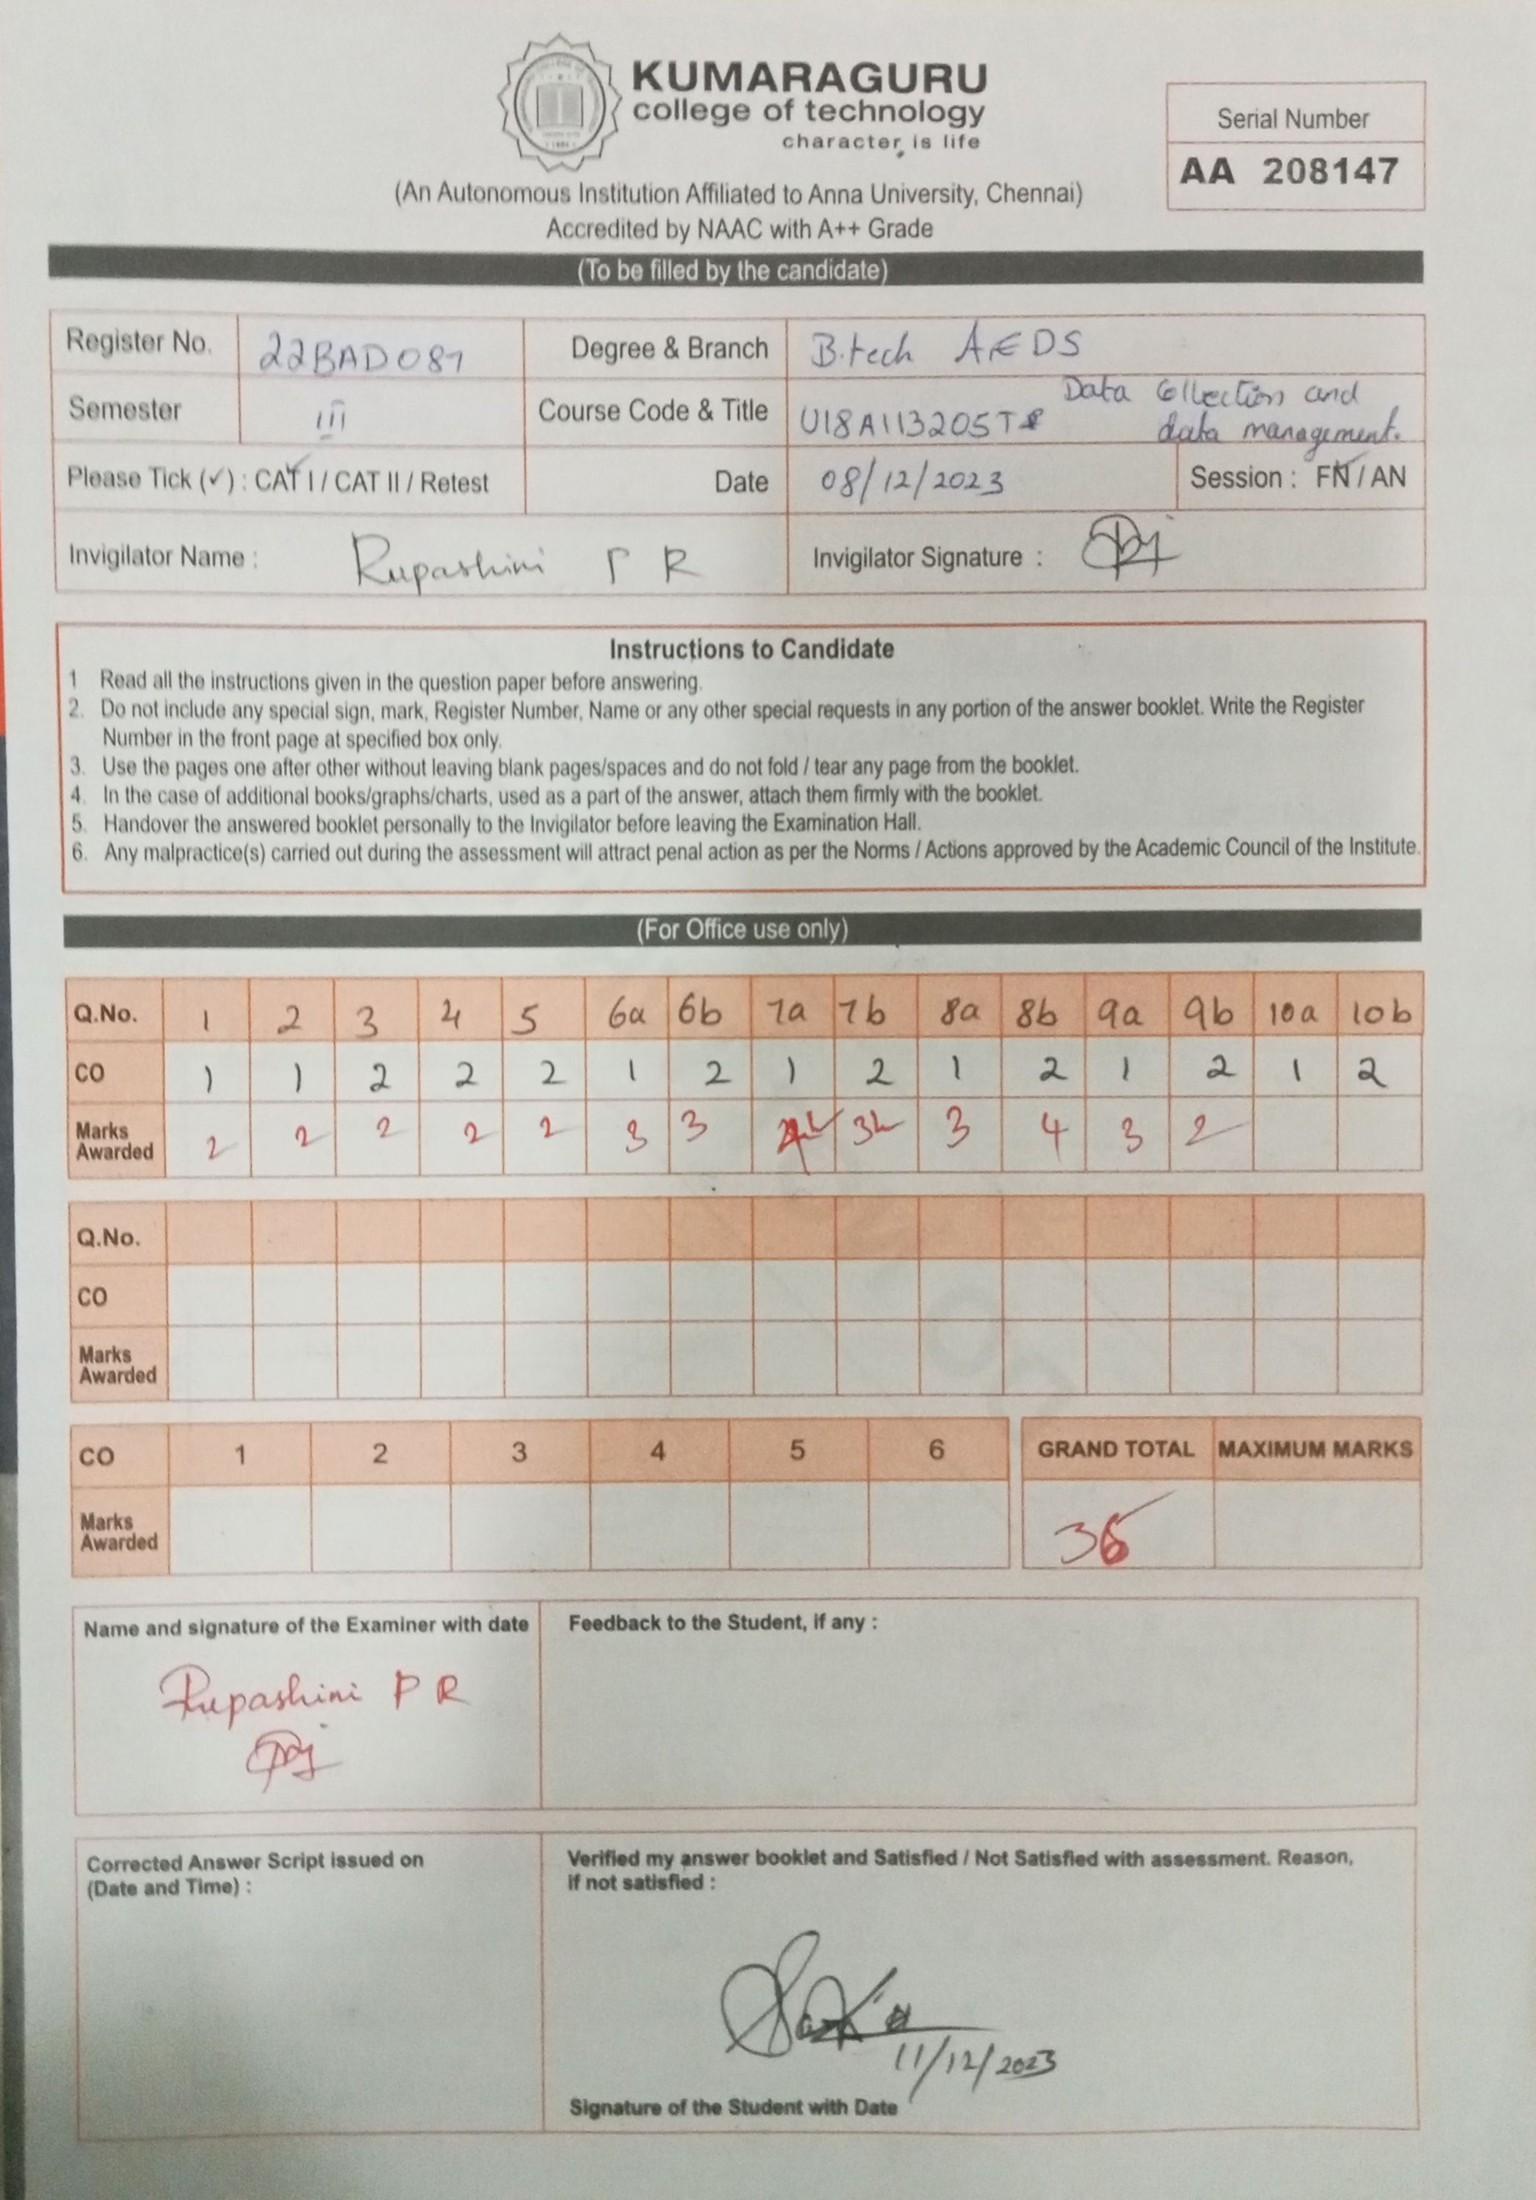 KUMARAGURU
college of technology
character is life
Serial Number
AA 208147
(An Autonomous Institution Affiliated to Anna University, Chennai)
Accredited by NAAC with A++ Grade
(To be filled by the candidate)
Register No. 22BAD081 Degree & Branch B.tech AEDS
Semester III Course Code & Title U18AI13205T Data Collection and
data management.
Please Tick (✓) : CAT I / CAT II / Retest Date 08/12/2023 Session : FN / AN
Invigilator Name : Rupashini P R Invigilator Signature :
Instructions to Candidate
1 Read all the instructions given in the question paper before answering.
2. Do not include any special sign, mark, Register Number, Name or any other special requests in any portion of the answer booklet. Write the Register
Number in the front page at specified box only.
3. Use the pages one after other without leaving blank pages/spaces and do not fold / tear any page from the booklet.
4. In the case of additional books/graphs/charts, used as a part of the answer, attach them firmly with the booklet.
5. Handover the answered booklet personally to the Invigilator before leaving the Examination Hall.
6. Any malpractice(s) carried out during the assessment will attract penal action as per the Norms / Actions approved by the Academic Council of the Institute.
(For Office use only)
Q.No. 1 2 3 4 5 6a 6b 7a 7b 8a 8b 9a 9b 10a 10b
CO 1 1 2 2 2 1 2 1 2 1 2 1 2 1 2
Marks
Awarded 2 2 2 2 2 3 3 3 4 3 2
Q.No.
CO
Marks
Awarded
CO 1 2 3 4 5 6 GRAND TOTAL MAXIMUM MARKS
Marks
Awarded 36
Name and signature of the Examiner with date
Rupashini P R
Feedback to the Student, if any :
Corrected Answer Script issued on
(Date and Time) :
Verified my answer booklet and Satisfied / Not Satisfied with assessment. Reason,
if not satisfied :
11/12/2023
Signature of the Student with Date